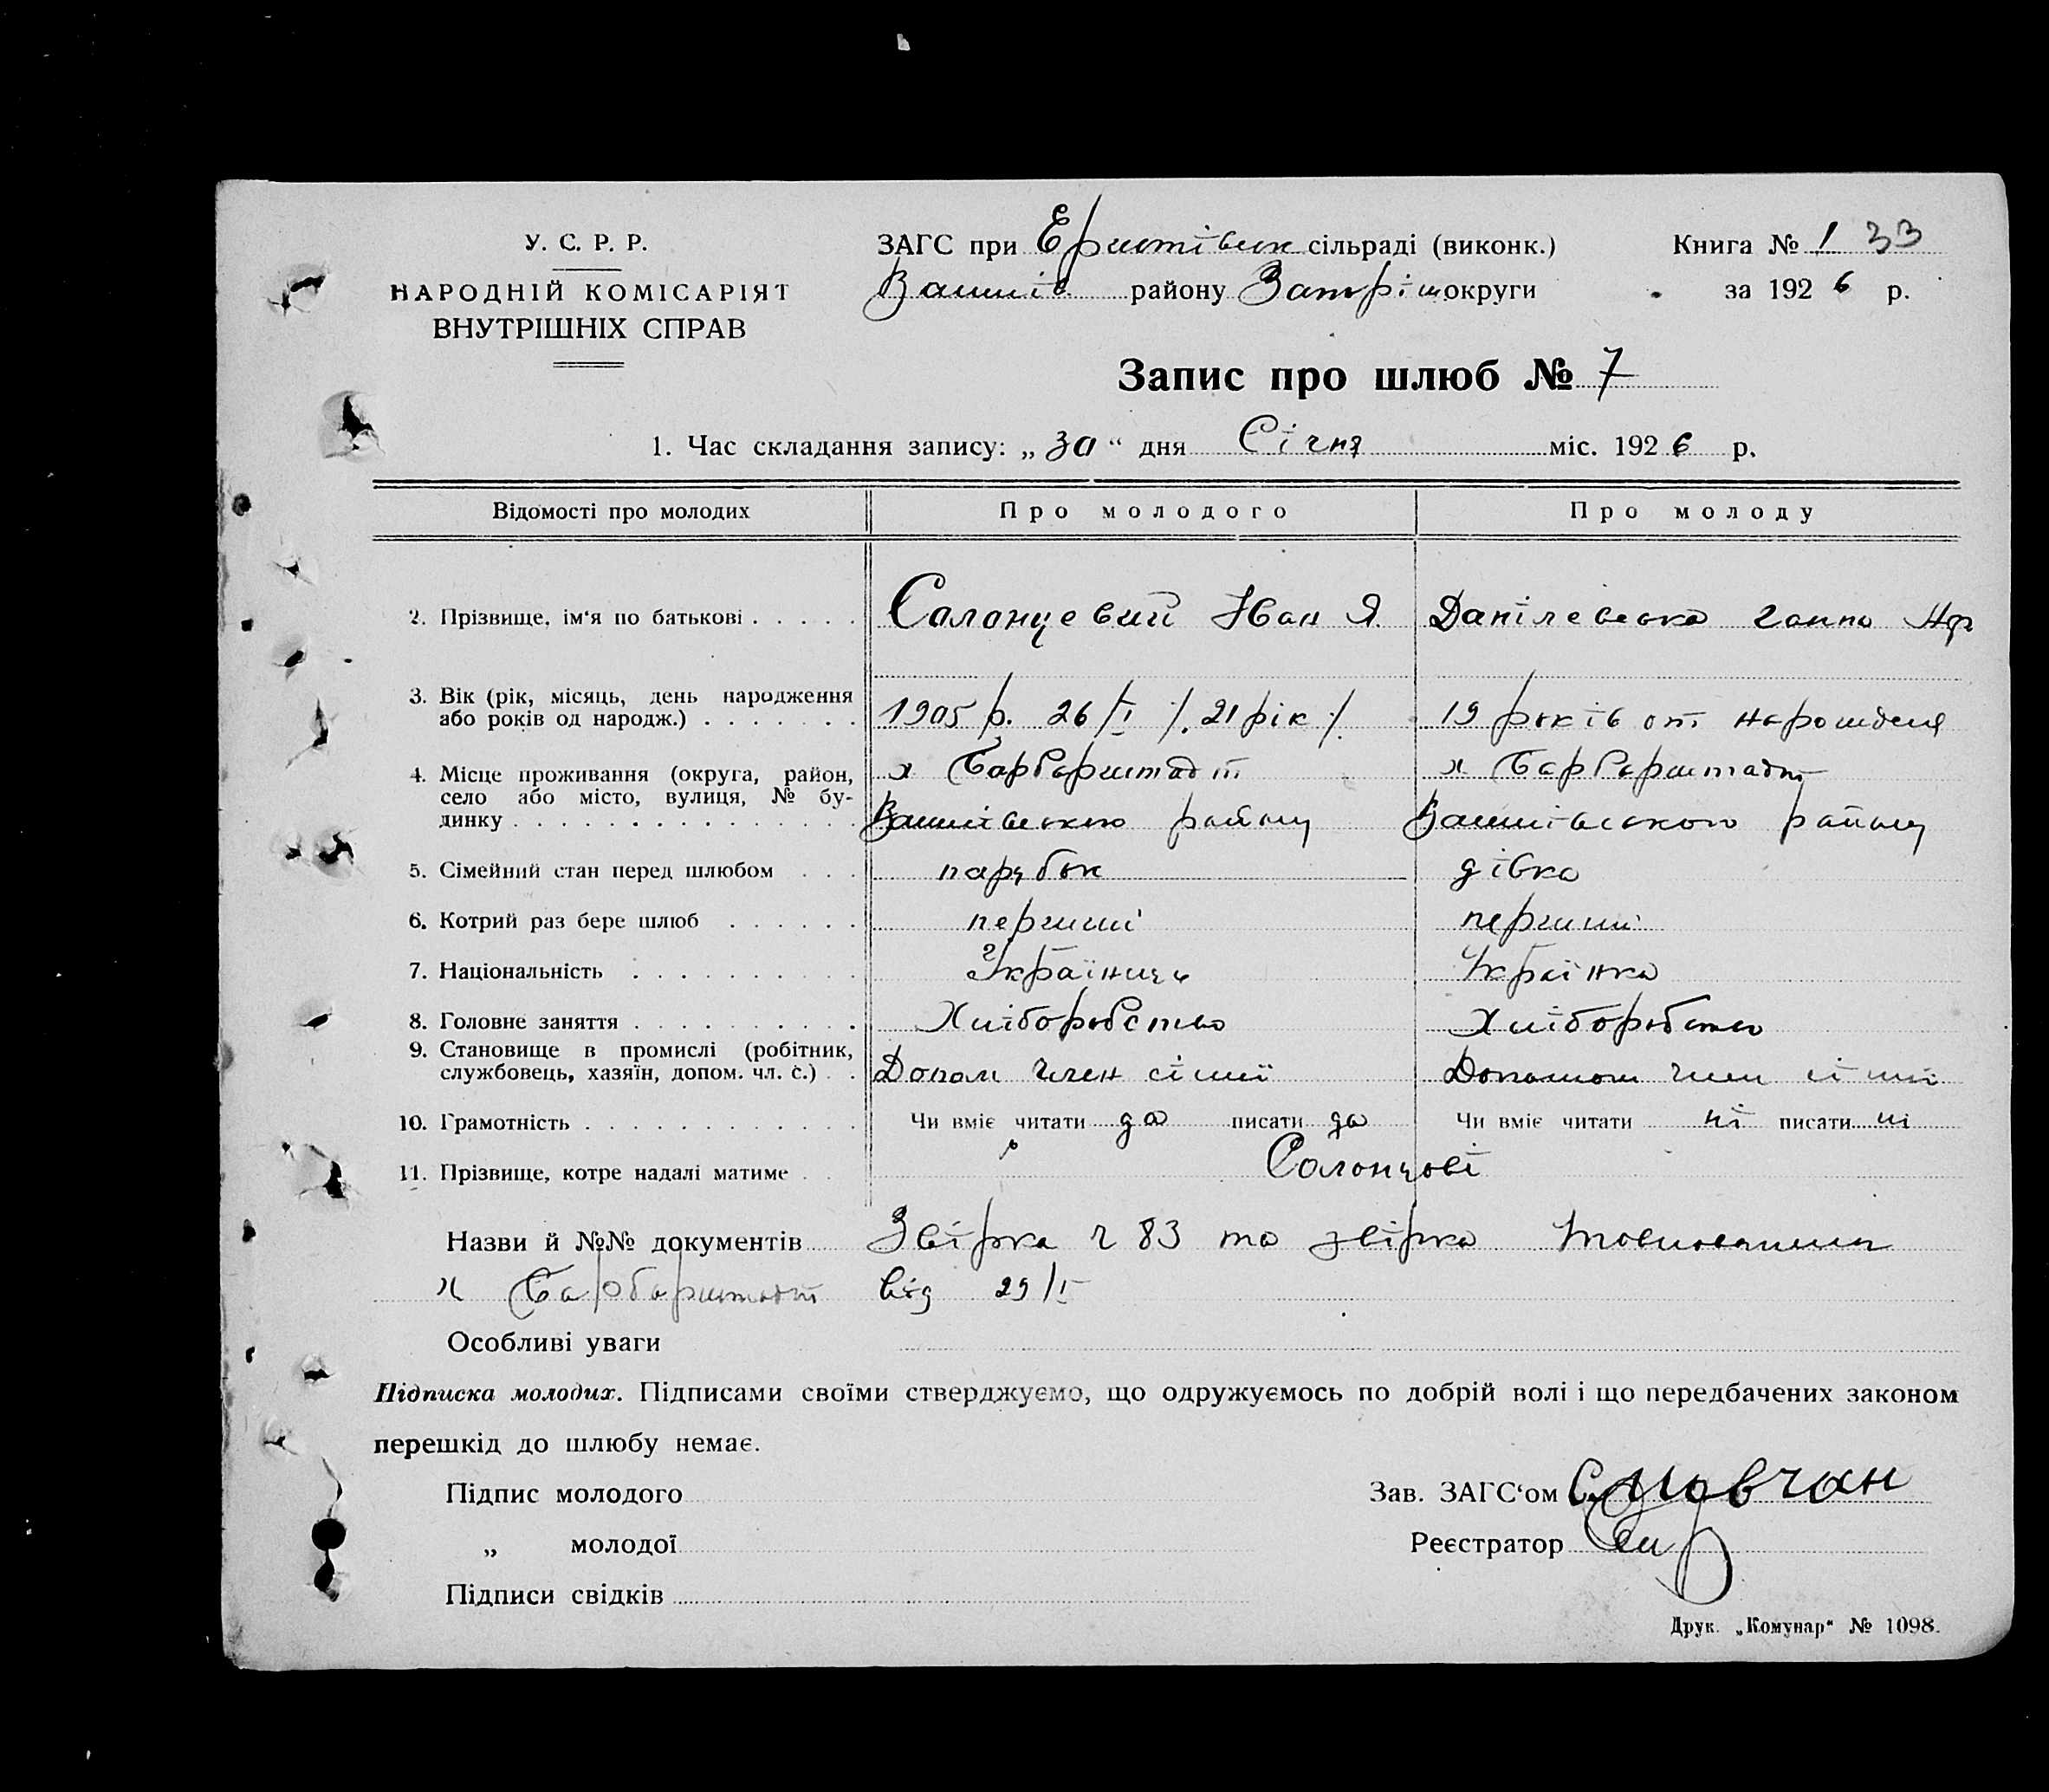 У. С. Р. Р.
НАРОДНІЙ КОМІСАРІЯТ
ВНУТРІШНІХ СПРАВ
ЗАГС при сільраді (виконк.)
району округи
Книга № 1 33
за 1926 р.
Запис про шлюб № 7
1. Час складання запису: „ “ дня Січня міс. 1926 р.
Відомості про молодих Про молодого Про молоду
2. Прізвище, ім‘я по батькові Салонцевий Іван Я. Данілевська Ганна
3. Вік (рік, місяць, день народження
або років од народж.) 1905 р. 26/I /.21 рік/. 19 років от
4. Місце проживання (округа, район, х Барбарштадт х Барбарштадт
село або місто, вулиця, № бу-
динку району району
5. Сімейний стан перед шлюбом парубок дівка
6. Котрий раз бере шлюб перший перший
7. Національність Українець Українка
8. Головне заняття Хліборобство Хліборобство
9. Становище в промислі (робітник,
службовець, хазяїн, допом. чл. с.) Допом член сімї член сімї
10. Грамотність Чи вміє читати да писати да Чи вміє читати ні писати ні
11. Прізвище, котре надалі матиме Салонцові
Назви й №№ документів ч 83 та
х Барбарштадт від 29/I
Особливі уваги
Підписка молодих. Підписами своїми стверджуємо, що одружуємось по добрій волі і що передбачених законом
перешкід до шлюбу немає.
Підпис молодого
„ молодої
Підписи свідків
Зав. ЗАГС‘ом Мовчан
Реєстратор
Друк. „Комунар“ № 1098.